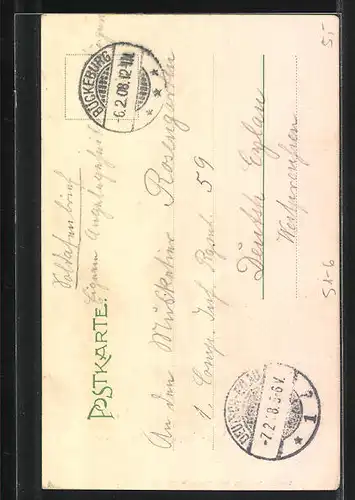 POSTKARTE.
Soldatenbrief
Eigene Angelegenheit
BÜCKEBURG
-6.2.08.12-
An den Musketier Rosengarten
1. Comp. Inf. Regmt. 59
Deutsch Eylau
Westpreussen
DEUT
-7.2.08.5-6V.
* 1
5,-
S1-6